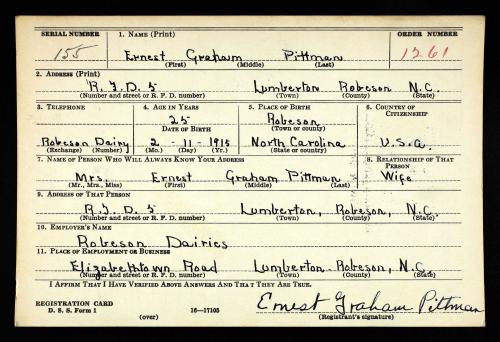 SERIAL NUMBER 1. NAME (Print) ORDER NUMBER
155 Ernest Graham Pittman 1261
(First) (Middle) (Last)
2. ADDRESS (Print)
R.F.D. 5 Lumberton Robeson N.C.
(Number and street or R. F. D. number) (Town) (County) (State)
3. TELEPHONE 4. AGE IN YEARS 5. PLACE OF BIRTH 6. COUNTRY OF CITIZENSHIP
25 Robeson
DATE OF BIRTH (Town or county)
Robeson Dairy 2-11-1915 North Carolina U.S.A.
(Exchange) (Number) (Mo.) (Day) (Yr.) (State or country)
7. NAME OF PERSON WHO WILL ALWAYS KNOW YOUR ADDRESS 8. RELATIONSHIP OF THAT PERSON
Mrs. Ernest Graham Pittman Wife
(Mr., Mrs., Miss) (First) (Middle) (Last)
9. ADDRESS OF THAT PERSON
R.F.D. 5 Lumberton, Robeson, N.C.
(Number and street or R. F. D. number) (Town) (County) (State)
10. EMPLOYER'S NAME
Robeson Dairies
11. PLACE OF EMPLOYMENT OR BUSINESS
Elizabethtown Road Lumberton Robeson, N.C.
(Number and street or R. F. D. number) (Town) (County) (State)
I AFFIRM THAT I HAVE VERIFIED ABOVE ANSWERS AND THAT THEY ARE TRUE.
REGISTRATION CARD Ernest Graham Pittman
D. S. S. Form 1 (over) 16—17105 (Registrant's signature)